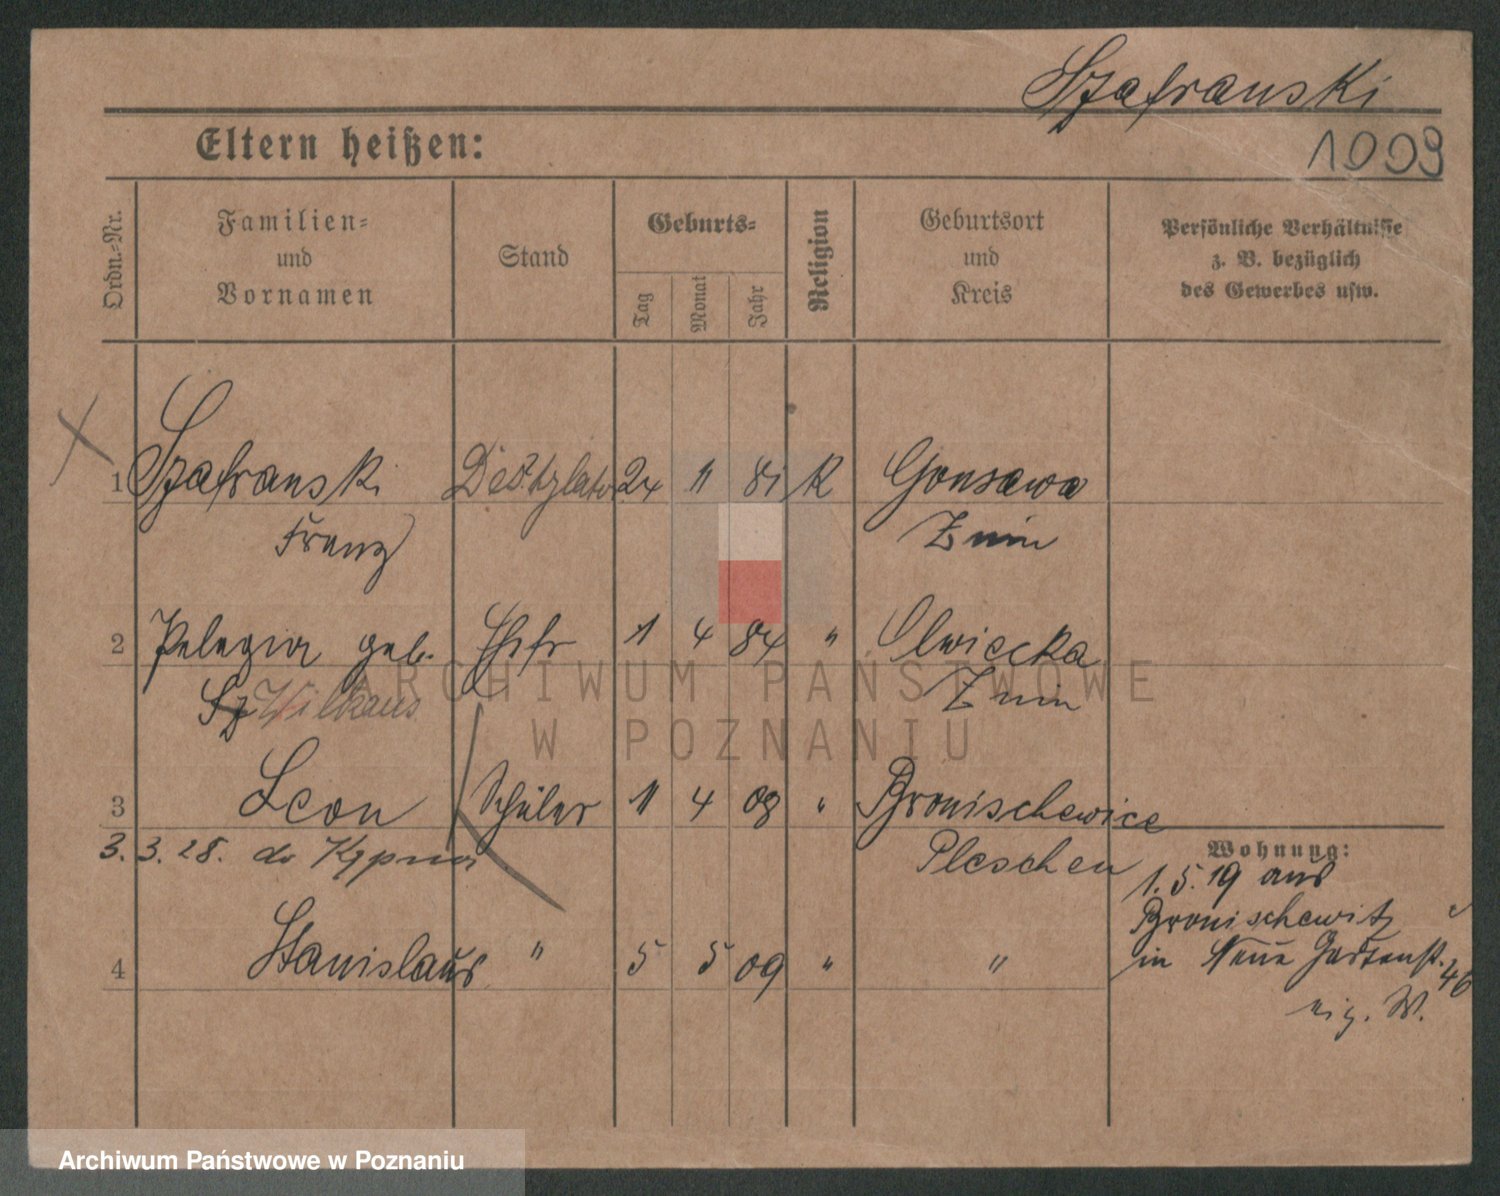 Szafranski
1009
Eltern heißen:
Ordn.-Nr.
Familien-
und
Vornamen
Stand
Geburts-
Tag
Monat
Jahr
Religion
Geburtsort
und
Kreis
Persönliche Verhältnisse
z. B. bezüglich
des Gewerbes usw.
1 Szafranski 24 11 81 K Gonsawa
Franz Znin
2 Pelagia geb. Ehefr 1 4 84 " Olwiecka
Wilkans Znin
3 Leon Schüler 11 4 08 " Bronischewice
3. 3. 28. do Kcynia Pleschen
4 Stanislaus " 5 5 09 " "
Wohnung:
1. 5. 19 aus
Bronischewitz
in Neue Gartenst. 46
eig. W.
ARCHIWUM PAŃSTWOWE
W POZNANIU
Archiwum Państwowe w Poznaniu